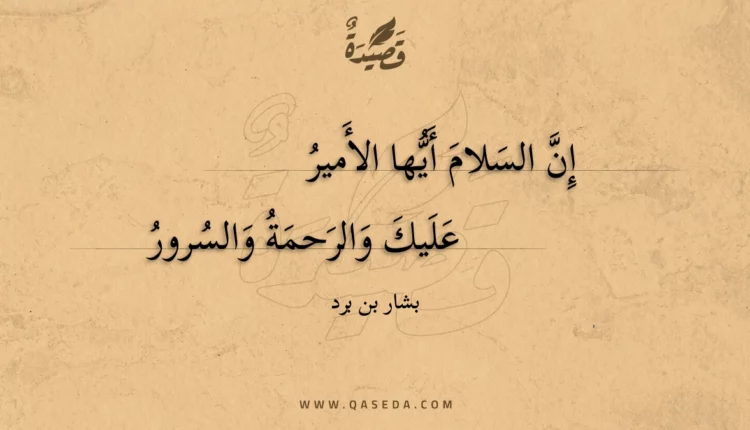 قَصِيدَةٌ
إِنَّ السَلامَ أَيُّها الأَميرُ
عَلَيكَ وَالرَحمَةُ وَالسُرورُ
بشار بن برد
WWW.QASEDA.COM